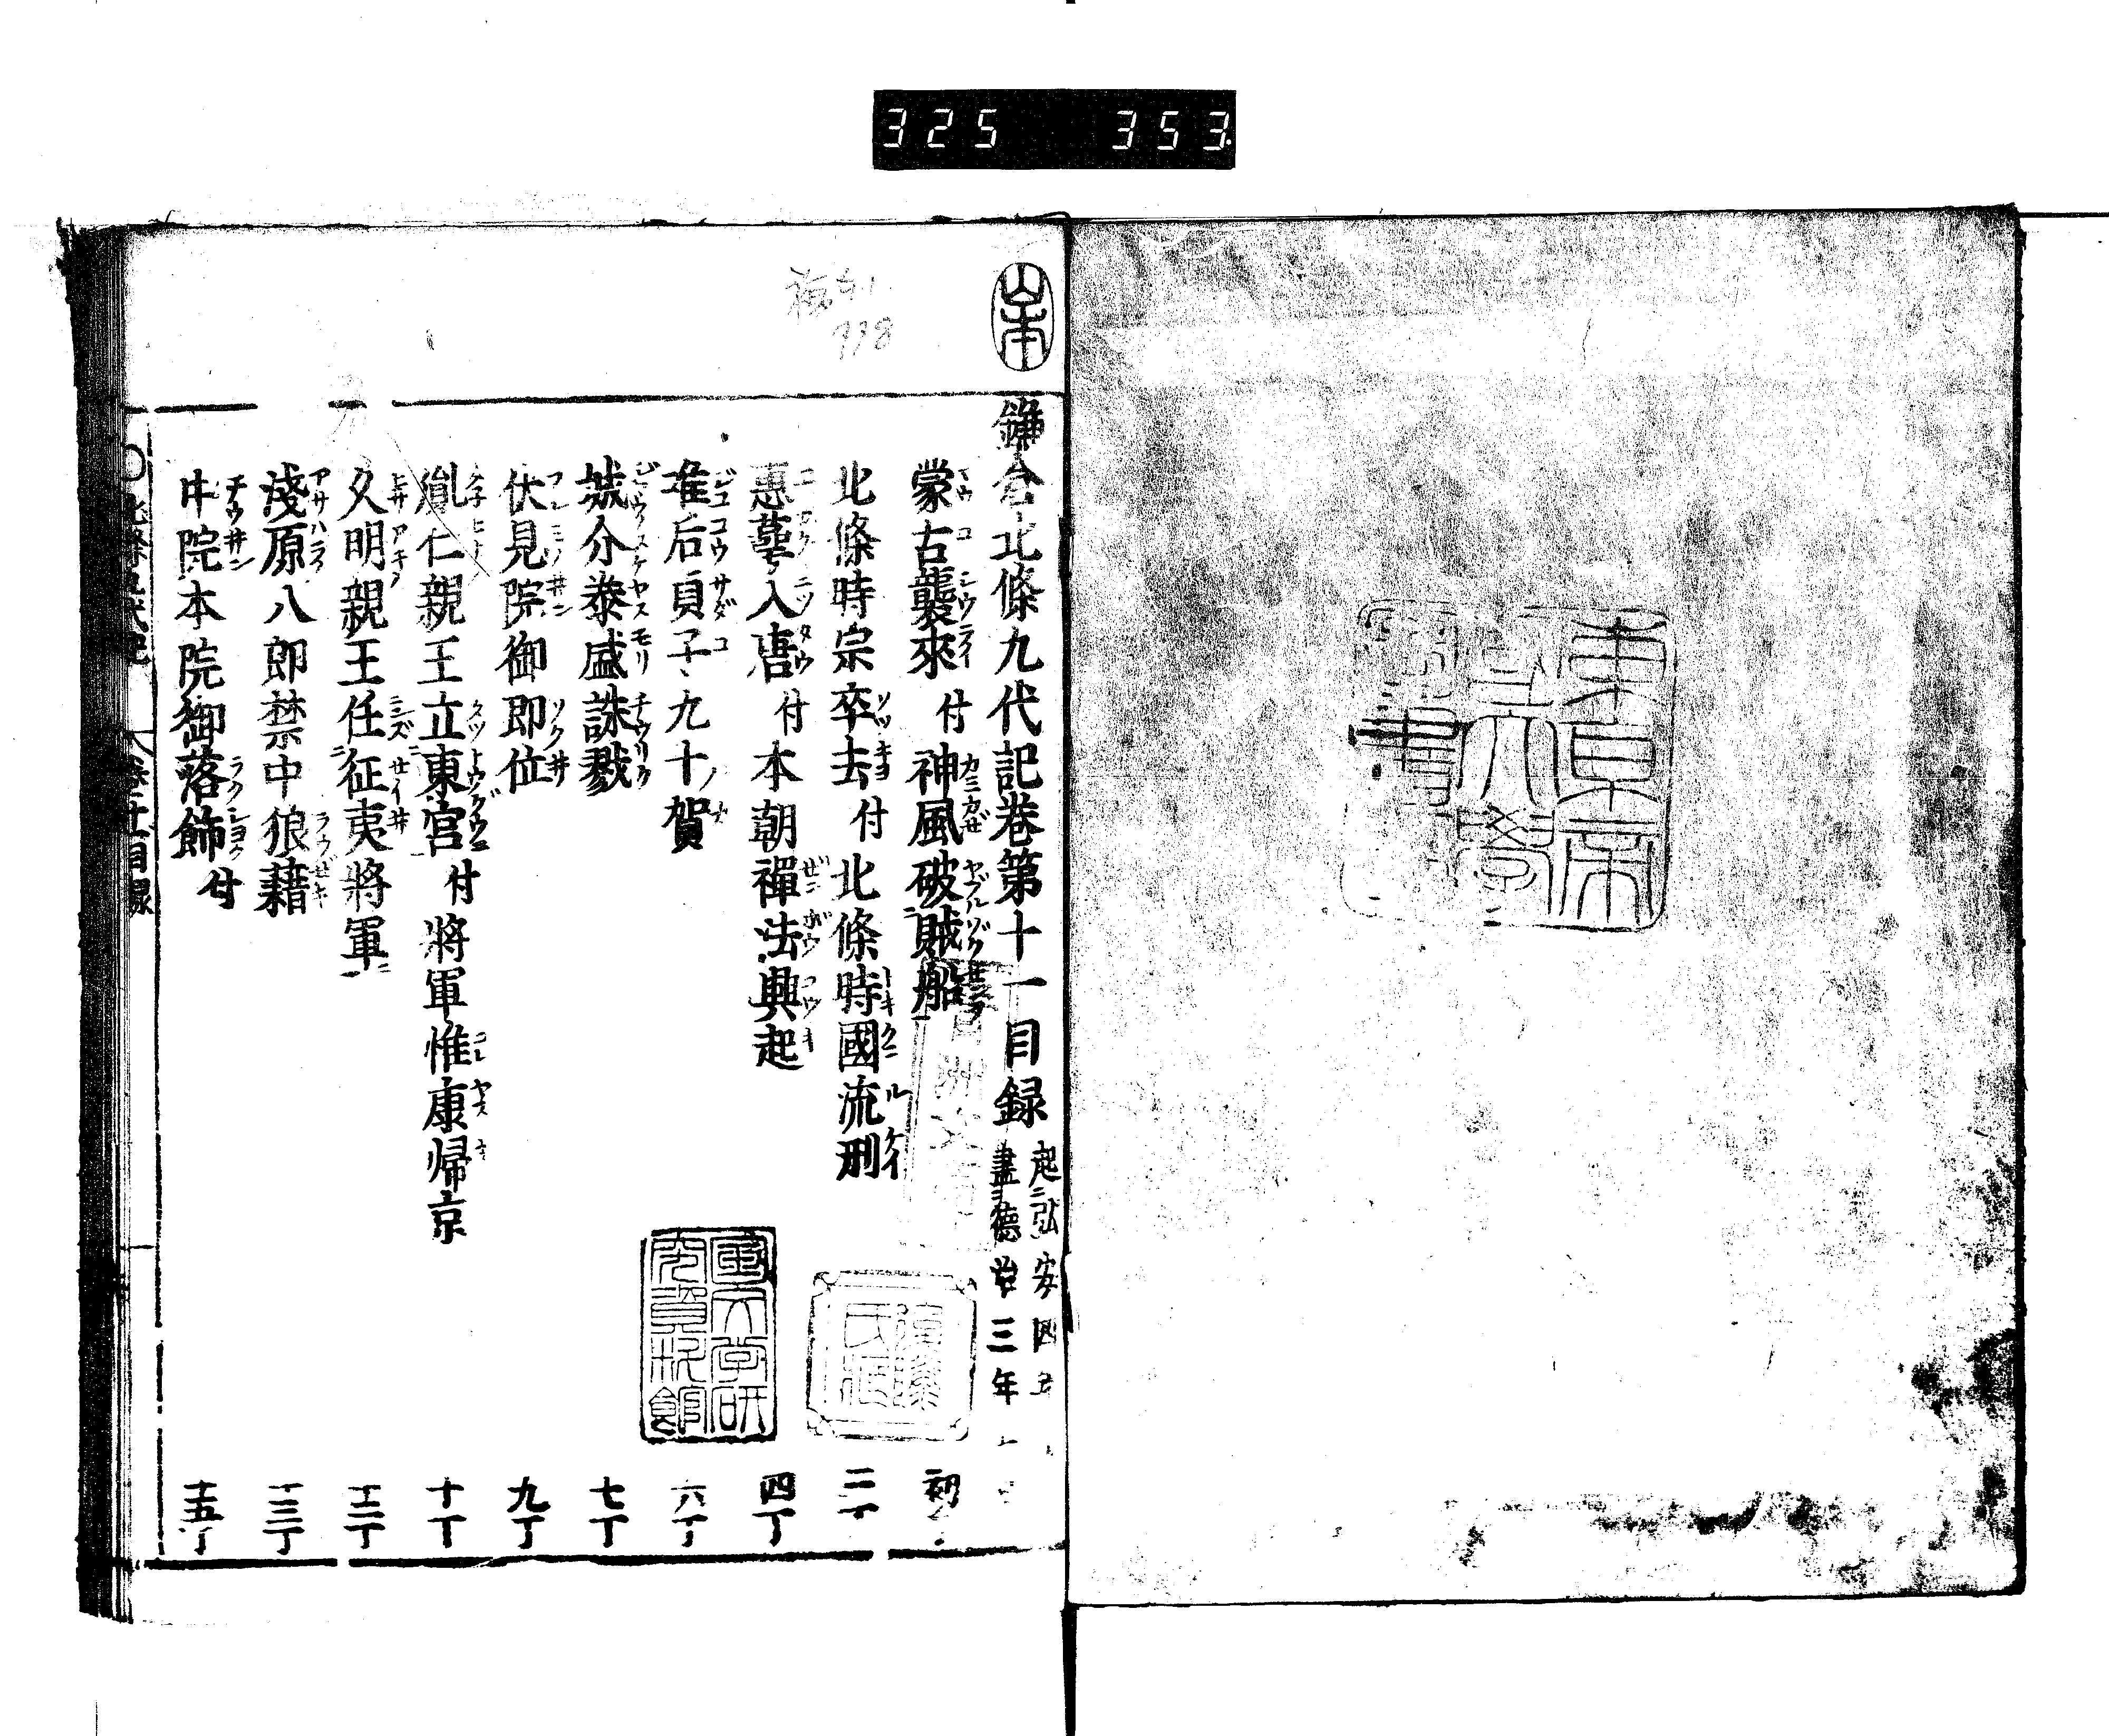 325 353
鎌倉北條九代記卷第十一目録 起ニ弘安四年 盡ニ德治三年
蒙古襲來 付 神風破賊船 初
北條時宗卒去 付 北條時國流刑 二丁
惠蕚入唐 付 本朝禪法興起 四丁
准后貞子九十賀 六丁
城介泰盛誅戮 七丁
伏見院御即位 九丁
胤仁親王立東宮 付 將軍惟康帰京 十丁
久明親王任征夷將軍 十二丁
淺原八郎禁中狼藉 十三丁
中院本院御落飾 付 十五丁
国文学研究資料館